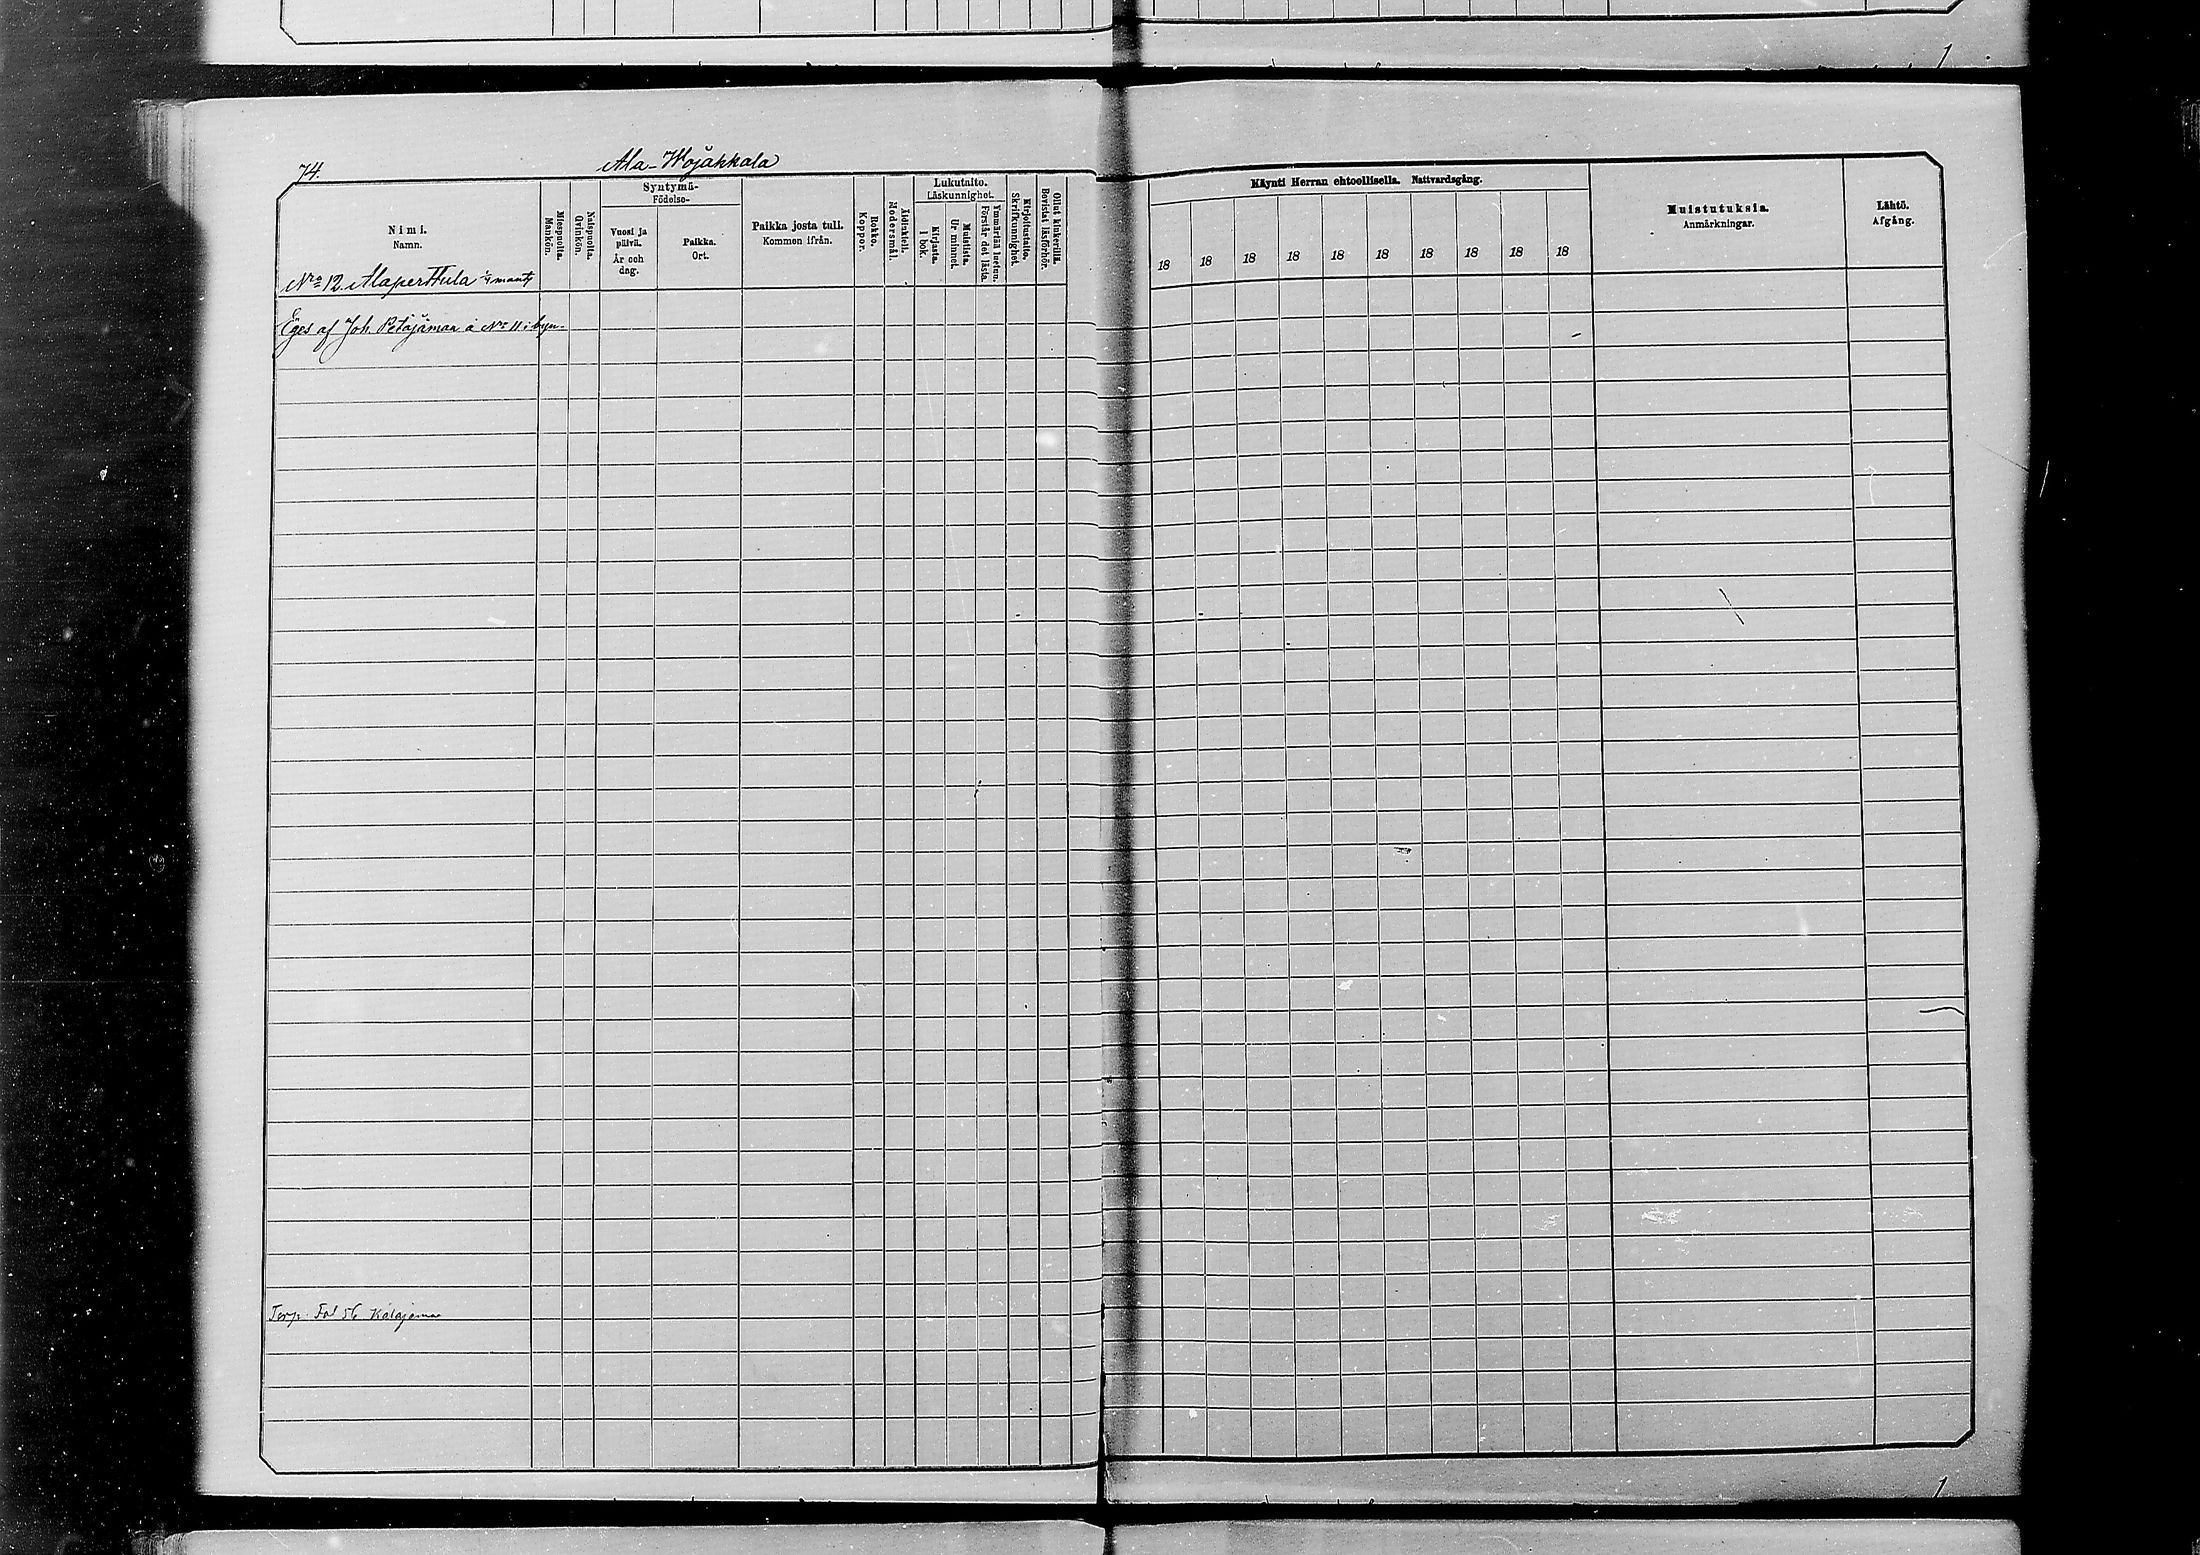 74.
Ala-Wojakkala
Nimi.
Namn.
Miespuolia.
Mankön.
Naispuolia.
Qvinkön.
Syntymä-
Födelse-
Vuosi ja
päivä.
År och
dag.
Paikka.
Ort.
Paikka josta tuli.
Kommen ifrån.
Rokko.
Koppor.
Äidinkieli.
Modersmål.
Lukutaito.
Läskunnighet.
Kirjasta.
I bok.
Muistista.
Ur minnet.
Ymmärtää luetun.
Förstår det lästa.
Kirjoitustaito.
Skrifkunnighet.
Ollut kinkerillä.
Bevistat läsförhör.
Käynti Herran ehtoollisella. Nattvardsgång.
18 18 18 18 18 18 18 18 18 18
Muistutuksia.
Anmärkningar.
Lähtö.
Afgång.
No 12. Alaperttula 1/4 mant
Eges af Joh. Petäjämaa å No 11 i byn.
Fol 56